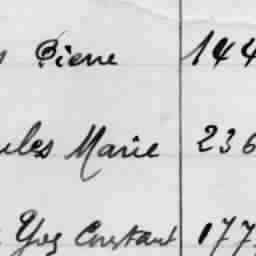 s Pierre 144
ules Marie 236
Yves Constant 177